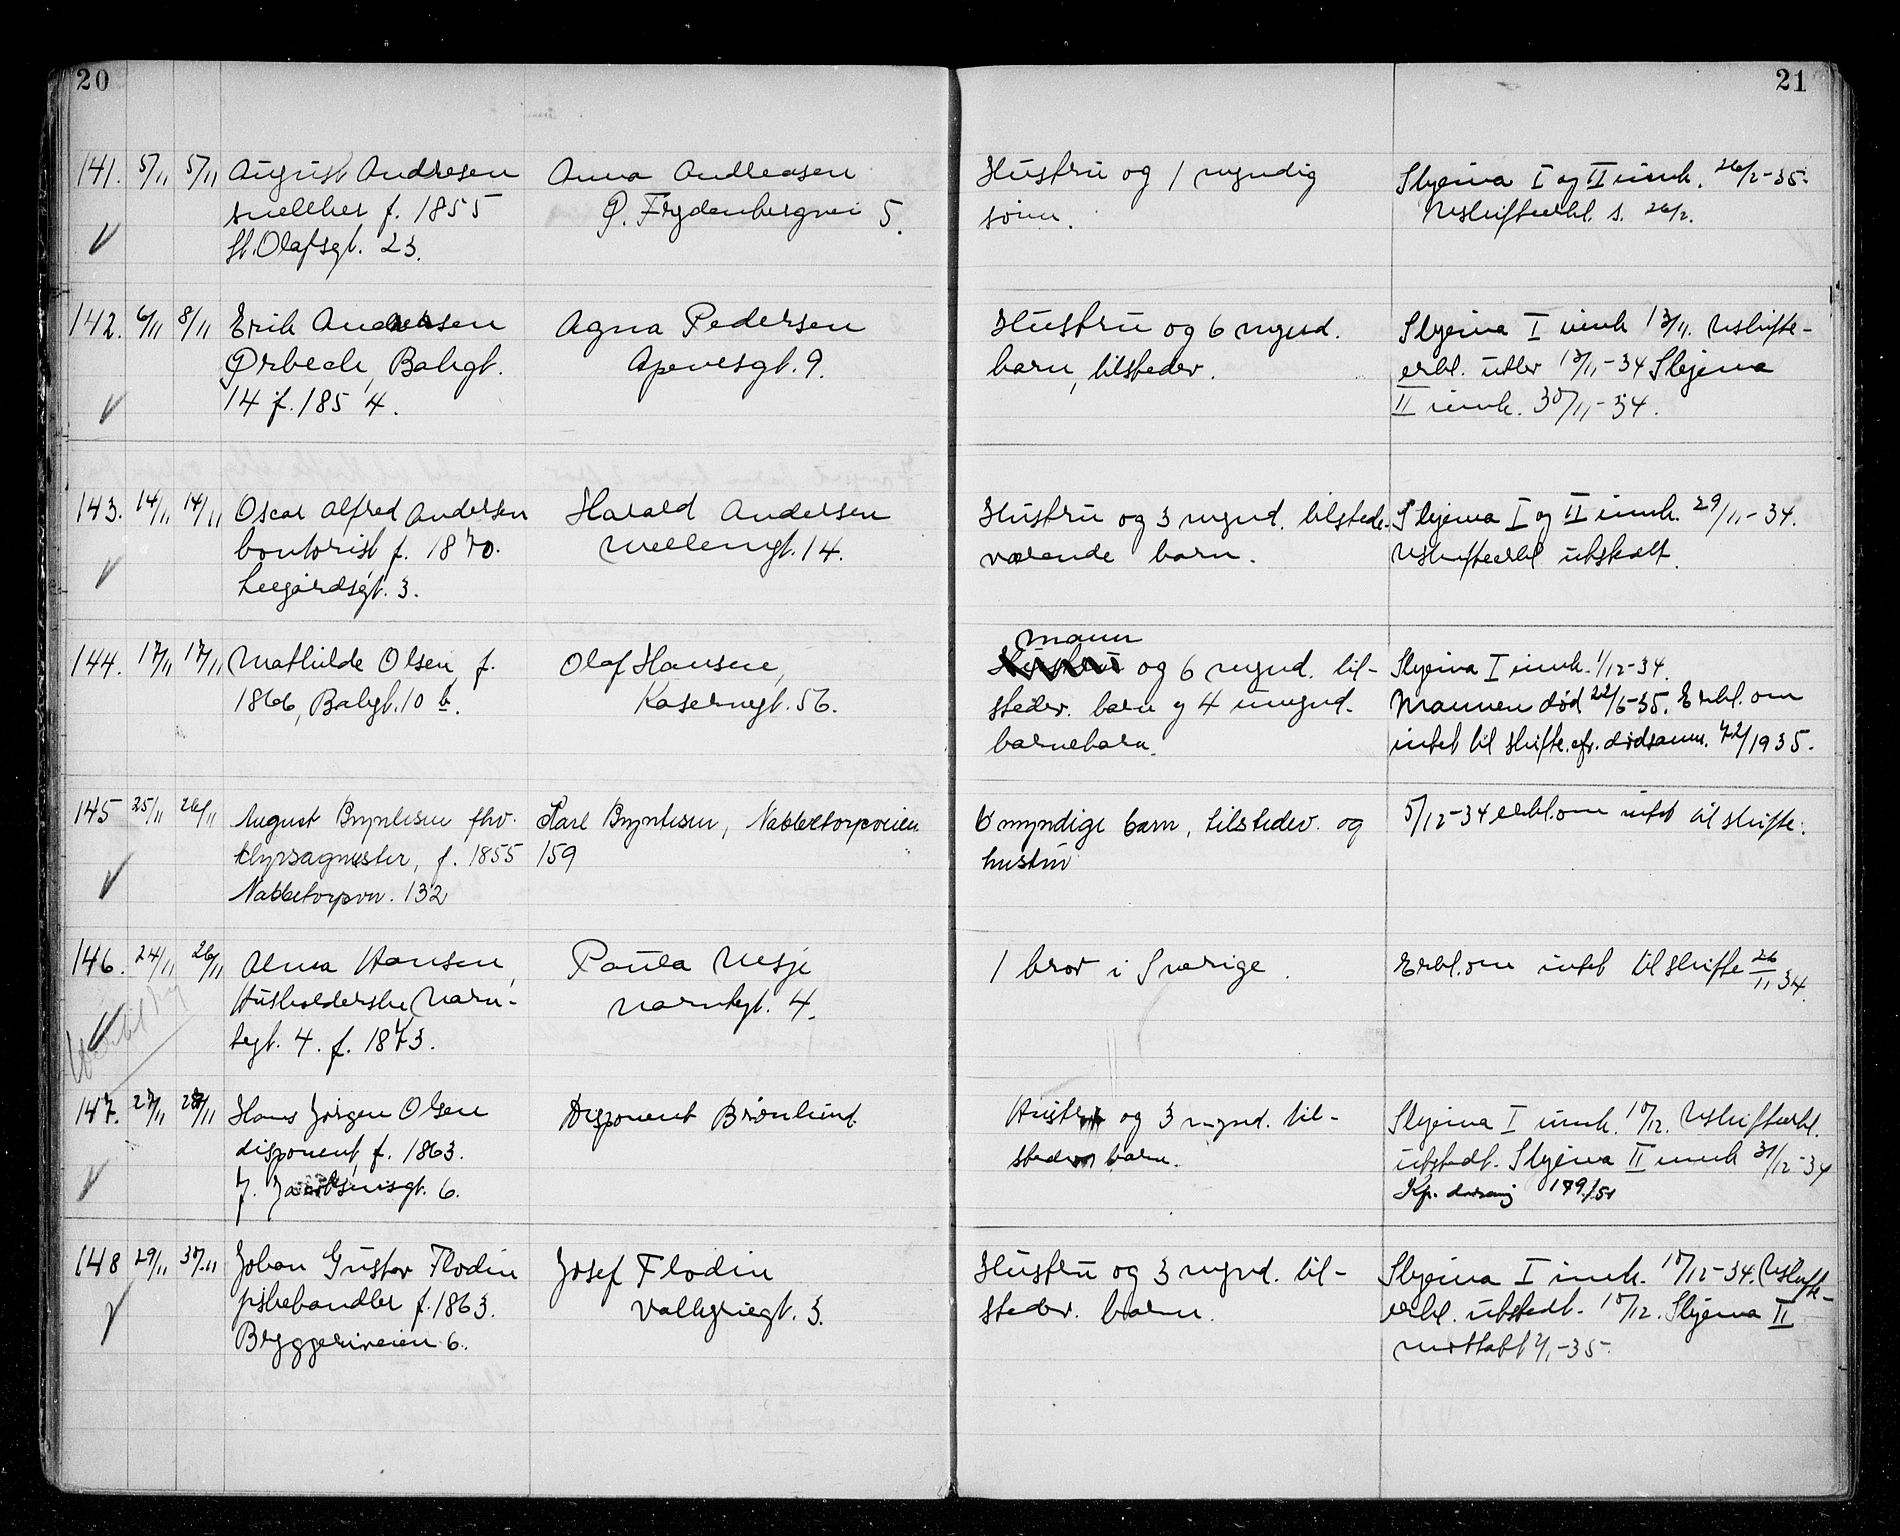 20
21
141. 5/11 5/11 August Andresen Anna Andreasen Hustru og 1 myndig Skjema I og II innk. 26/2-35.
snekker f. 1855 Ø. Frydenbergvei 5. sønn. Uskifteerkl. s. 26/2.
St. Olafsgt. 23.
142. 6/11 8/11 Erik Andersen Agna Pedersen Hustru og 6 mynd. Skjema I innk 13/11. Uskifte-
Ørbeck, Bakgt. Apenesgt. 9. barn, tilstedev. erkl. utlev 13/11-34 Skjema
14 f. 1854. II innk. 30/11-34.
143. 14/11 14/11 Oscar Alfred Andersen Harald Andersen Hustru og 3 mynd. tilstede- Skjema I og II innk. 29/11-34.
kontorist f. 1870. Mellemgt. 14. værende barn. Uskifteerkl utstedt.
Leegårdsgt. 3.
mann
144. 17/11 17/11 Mathilde Olsen f. Olaf Hansen, Hustru og 6 mynd. til- Skjema I innk. 1/12-34.
1866, Bakgt. 10 b. Kasernegt. 56. stedev. barn og 4 umynd. Mannen død 22/6-35. Erkl. om
barnebarn. intet til skifte. cfr. dødsanm. 72/1935.
145 25/11 26/11 August Bryntesen fhv. Karl Bryntesen, Nabbetorpveien 6 myndige barn, tilstedev. og 5/12-34 erkl. om intet til skifte.
f. 1855 159 hustru
Nabbetorpvn. 132
146. 24/11 26/11 Alma Hansen, Paula Nesje 1 bror i Sverige. Erkl. om intet til skifte 26/11 34.
Husholderske, Varn- Varntegt. 4.
tegt. 4. f. 1873.
147. 27/11 28/11 Hans Jørgen Olsen Disponent Brønlund. Hustru og 3 mynd. til- Skjema I innk. 10/12. Uskifteerkl.
disponent, f. 1863. stedev barn. utstedt. Skjema II innk 31/12-34
J. Jacobsensgt. 6. 179/51
148 29/11 30/11 Johan Gustav Flodin Josef Flodin Hustru og 3 mynd. til- Skjema I innk. 10/12-34. Uskifte-
fiskehandler f. 1863. Valkyriegt. 3. stedev. barn. erkl. utstedt. 10/12. Skjema II
Bryggeriveien 6. mottatt 2/1-35.